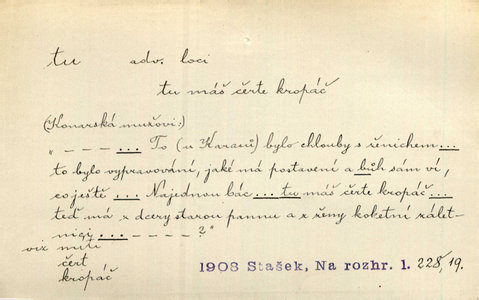 tu adv. loci
tu máš čerte kropáč
(Konarská mužovi:)
"– – – – ... To (u Karasů) bylo chlouby s ženichem ...
to bylo vypravování, jaké má postavení a bůh sám ví,
co ještě ... Najednou bác ... tu máš čerte kropáč ...
teď má z dcery starou pannu a z ženy koketní zálet-
nici ... – – – – ?"
viz míti
čert
kropáč
1908 Stašek, Na rozhr. 1. 228, 19.